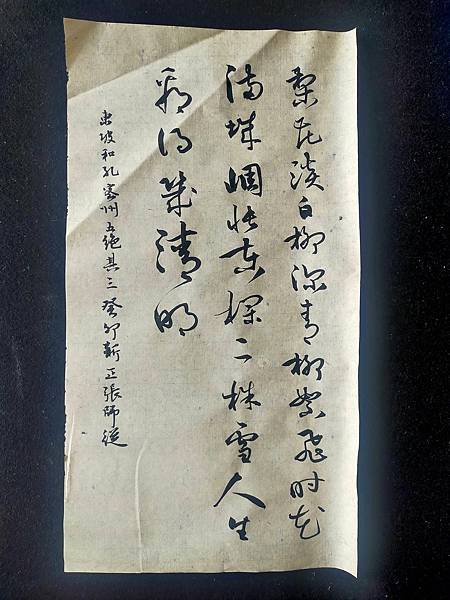 梨花淡白柳深青柳絮飛時花
滿城惆悵東欄二株雪人生
看得幾清明
東坡和孔密州五絕其三癸卯新正張師從